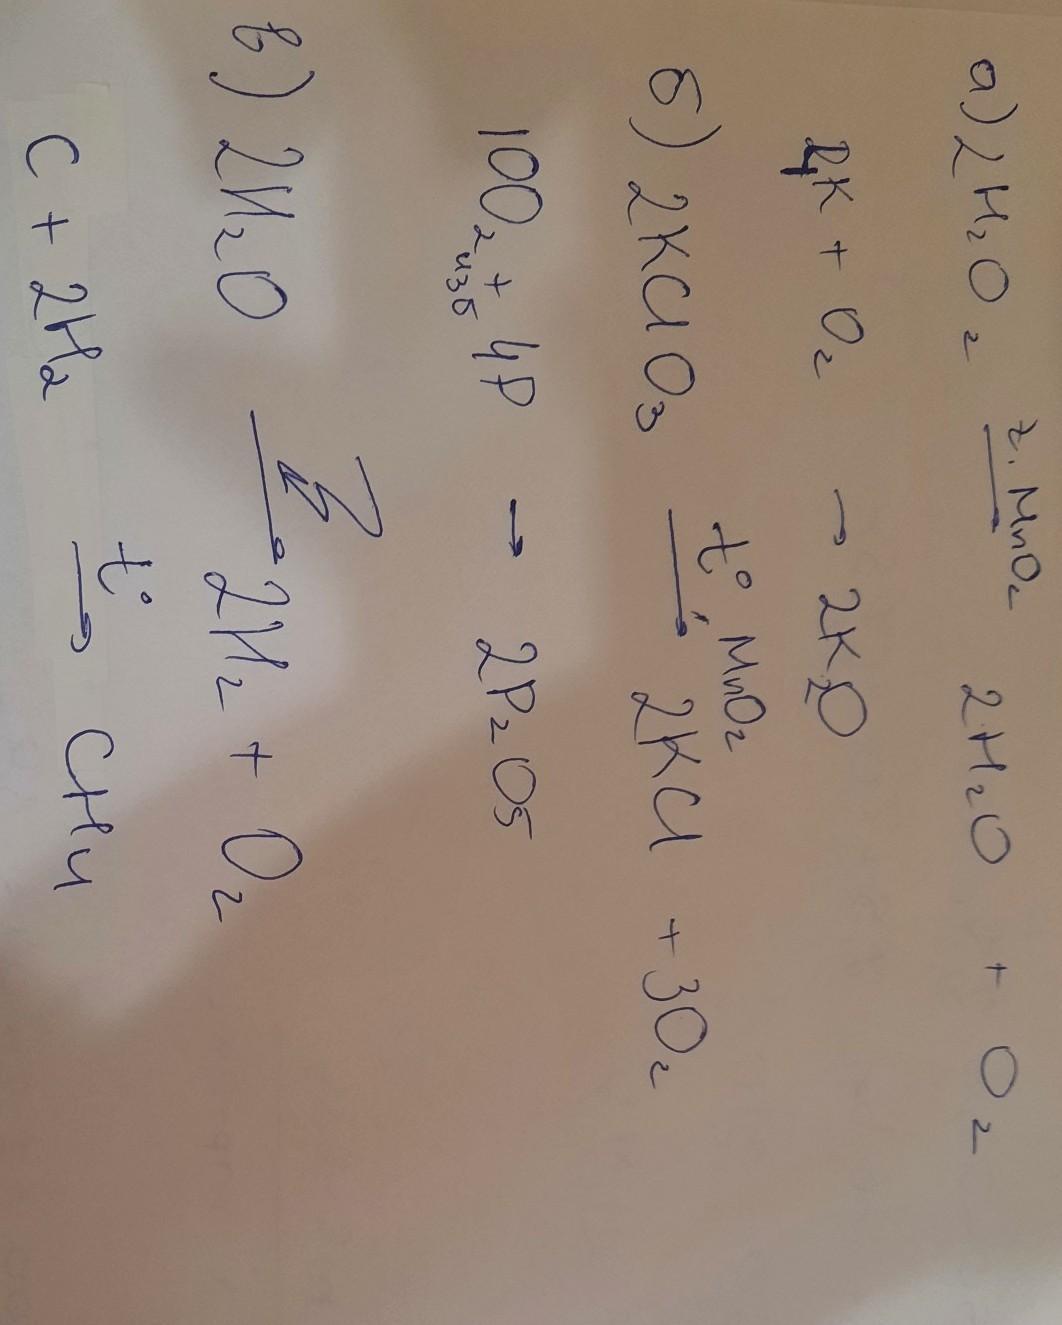 а) 2H₂O₂ t. MnO₂ → 2H₂O + O₂
4K + O₂ → 2K₂O
б) 2KClO₃ t° MnO₂ → 2KCl + 3O₂
10O₂ изб + 4P → 2P₂O₅
в) 2H₂O → 2H₂ + O₂
C + 2H₂ t° → CH₄